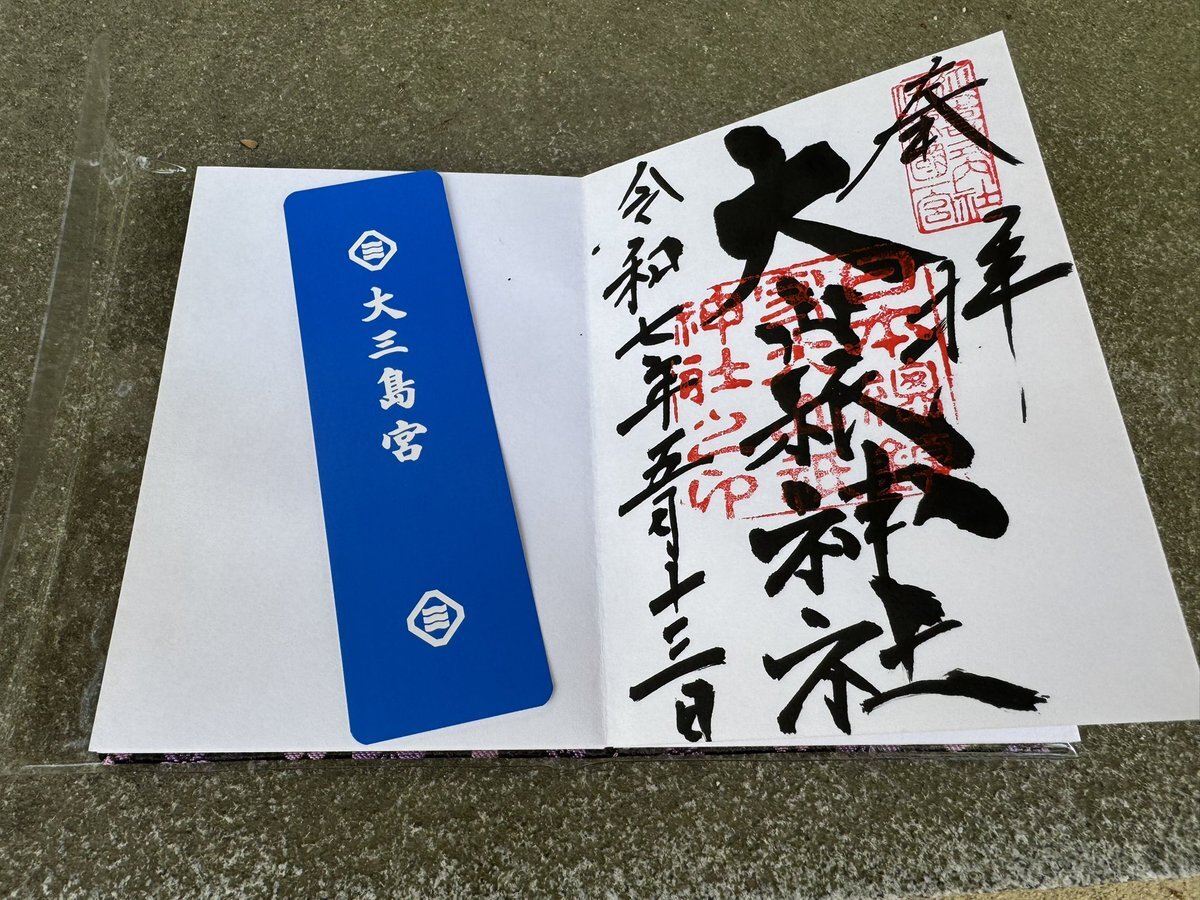 奉拝
大山祇神社
令和七年五月十三日
日本總鎮
守大山祇
神社之印
大三島宮